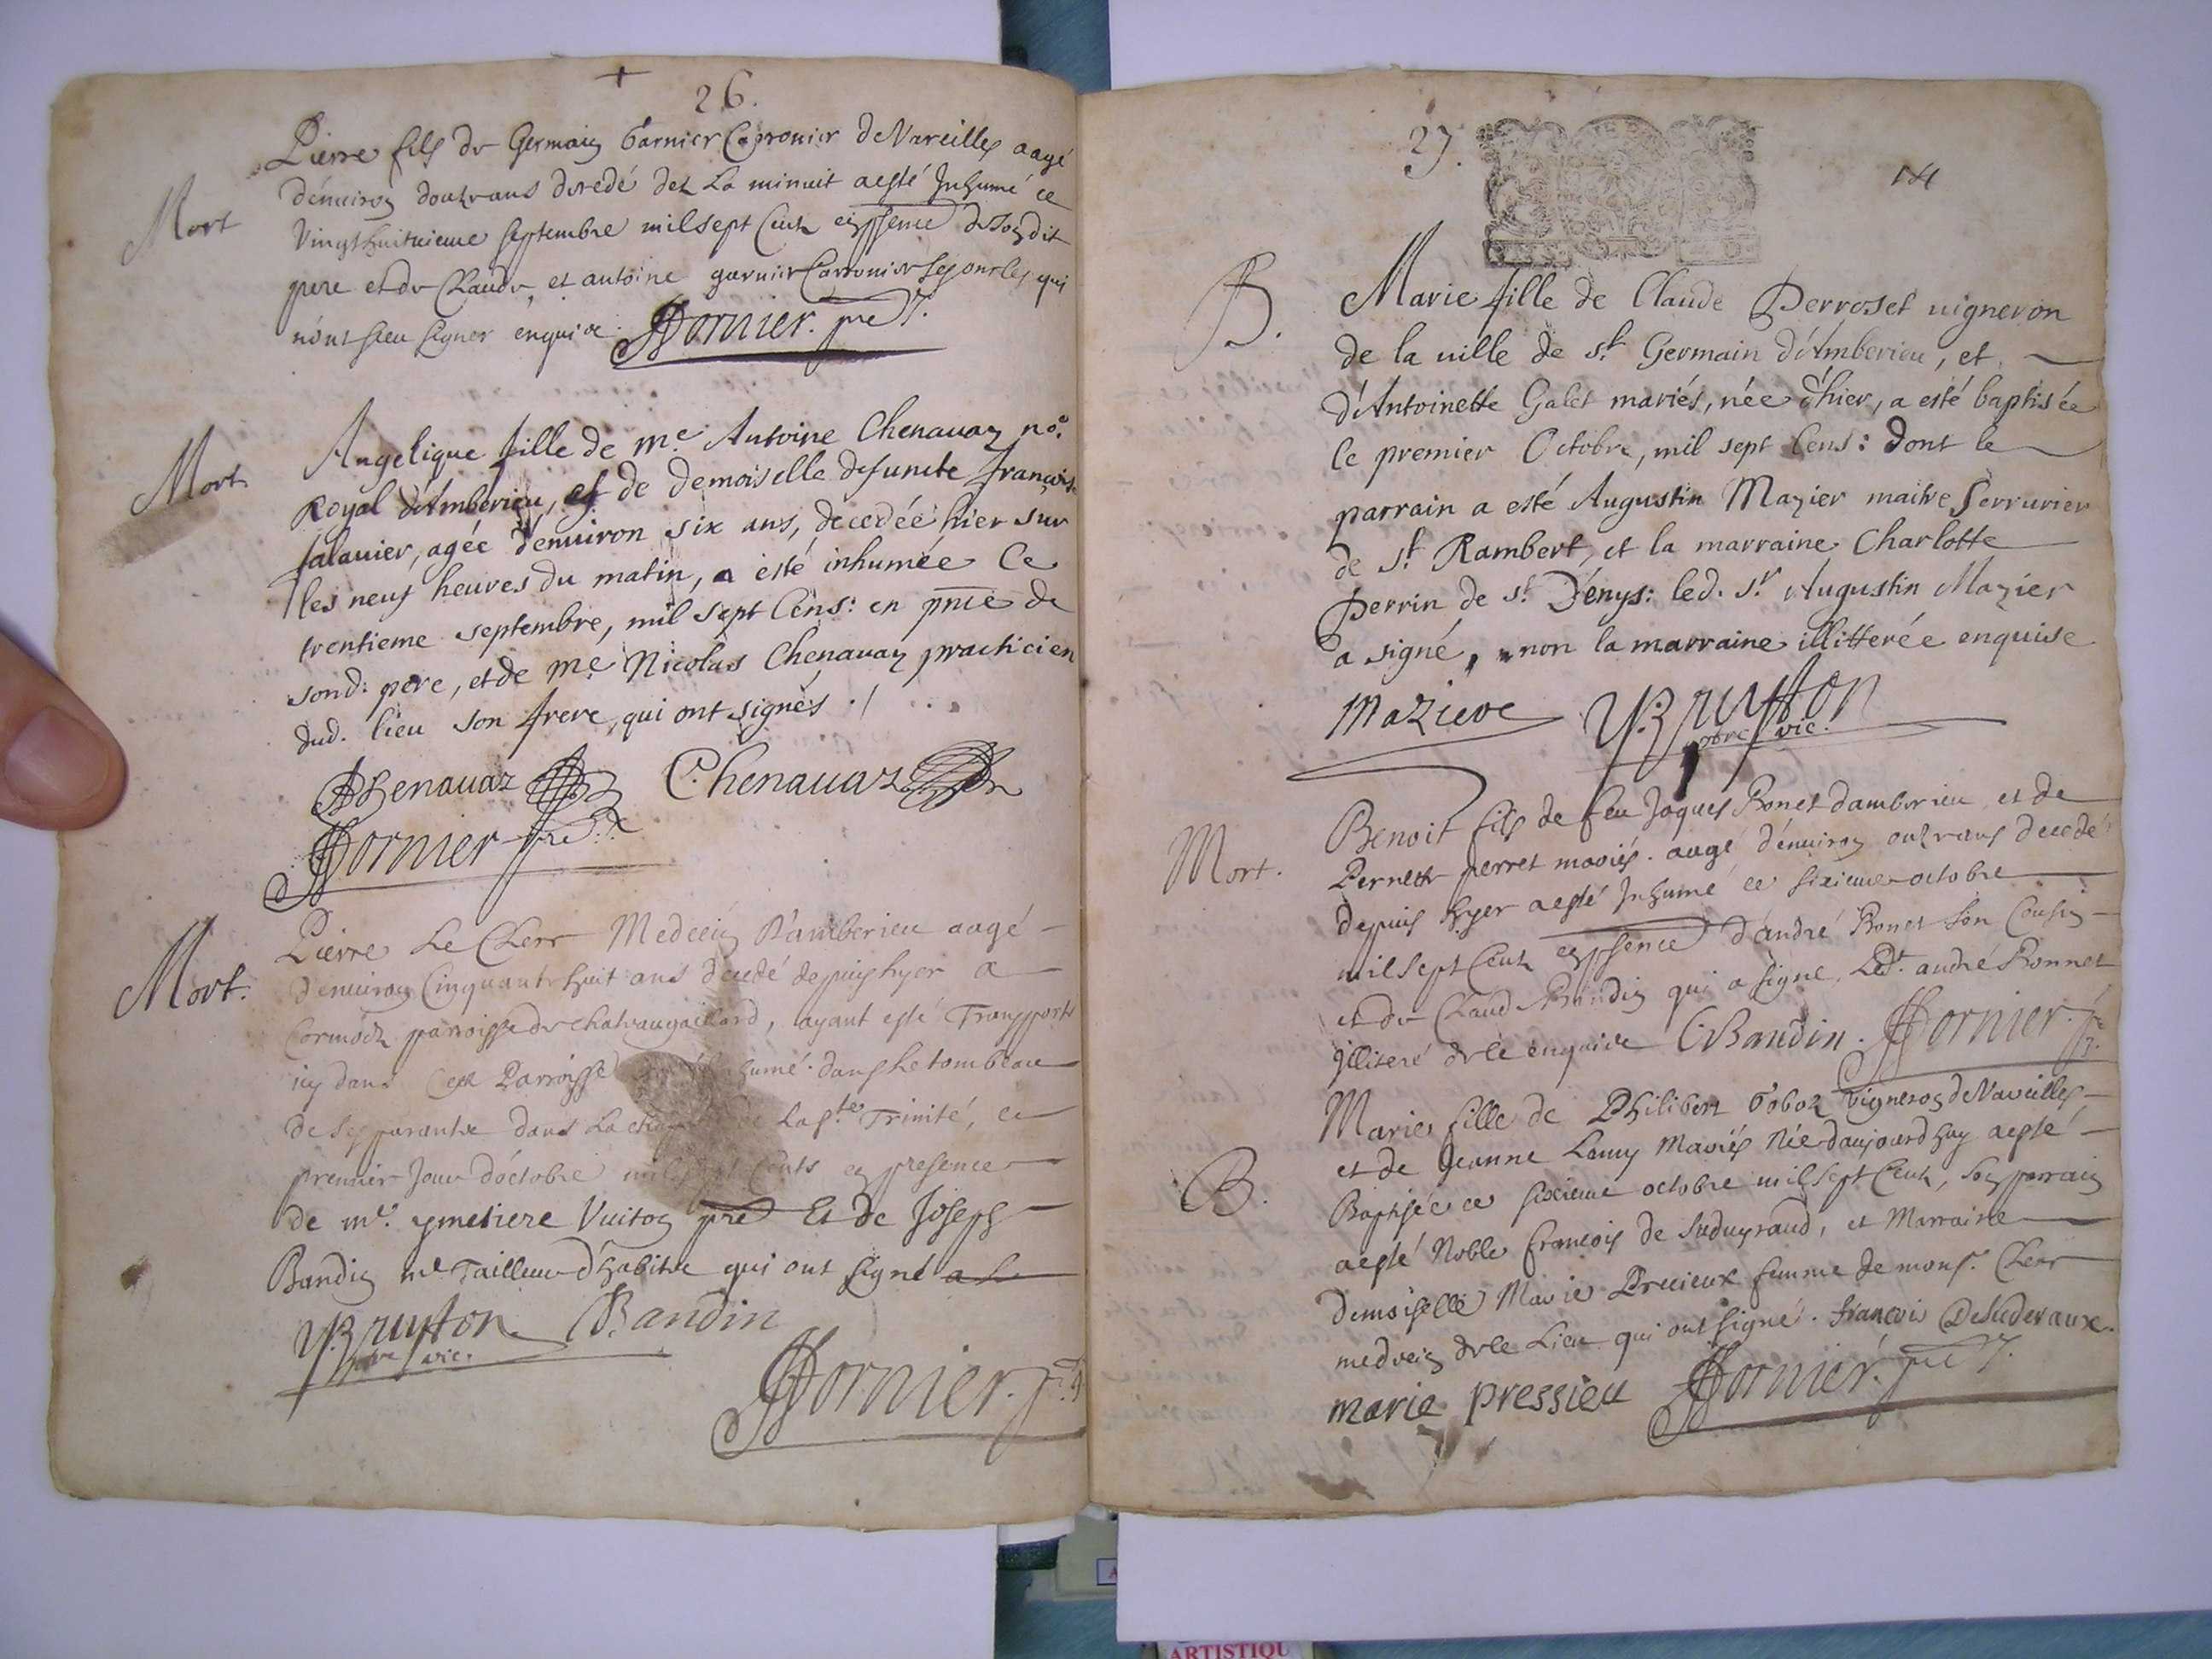 26.
Mort
Pierre fils de Germain Garnier Charronier de Vareilles aagé
d'enuiron douze ans decedé dez la minuit a esté Inhumé ce
Vingt huitieme septembre mil sept Cents en psence de son dit
pere et de Claude, et antoine garnier Charronier ses oncles qui
n'ont sceu signer enquis.
Dornier. pre
Mort
Angelique fille de me. Antoine Chenauaz no.e
Royal d'Amberieu, et de demoiselle defuncte françoise
Jalauier, agée d'enuiron six ans, decedée hier sur
les neuf heures du matin, a esté inhumée Ce
trentieme septembre, mil sept Cens: en pnce de
sond: pere, et de me. Nicolas Chenauaz practicien
dud. lieu son frere, qui ont signés ./
Chenauaz Chenauaz
Dornier pre
Mort.
Pierre Le Clerc Medecin d'amberieu aagé
d'enuiron Cinquante huit ans decedé depuis hyer a
Cormoz parroisse de chateaugaillard, ayant esté Transporté
icy dans Cette Parroisse humé dans le tombeau
de ses parants dans la de la ste. Trinité, ce
premier Jour d'octobre mil sept Cents en presence
de me. ymetiere Vuiton pre Et de Joseph
Bandin me Tailleur d'habits qui ont signé
Bruyton Bandin
pbre vic.
Dornier. pre
27.
B.
Marie fille de Claude Perroset uigneron
de la uille de st. Germain d'Amberieu, et
d'Antoinette Galet mariés, née d'hier, a esté baptisée
le premier Octobre, mil sept Cens: dont le
parrain a esté Augustin Mazier maitre Serrurier
de st. Rambert, et la marraine Charlotte
Perrin de st. Dénys: led. sr. Augustin Mazier
a signé, non la marraine illitterée enquise
maziere Bruyton
pbre vic.
Mort.
Benoit fils de feu Jaques Bonet d'amberieu et de
Pernette perret mariés. aagé d'enuiron onze ans decedé
depuis hyer a esté Inhumé ce sixieme octobre
mil sept Cents en psence d'andré Bonet son Cousin
et de Claude Bandin qui a signé, Ledt. andré Bonnet
illiteré de ce enquis C Bandin. Dornier. pre
B.
Marie fille de Philibert Goboz Vigneron de Vareilles
et de Jeanne Lamy Mariés Née d'aujourd'huy a esté
Baptisée ce sixieme octobre mil sept Cents, son parrain
a esté Noble françois de Suduyraud, et Marraine
Demoiselle Marie Precieux femme de mons. Clerc
medecin de ce Lieu qui ont signé. françois DeSuderaux.
marie pressieu Dornier. pre
ARTISTIQU